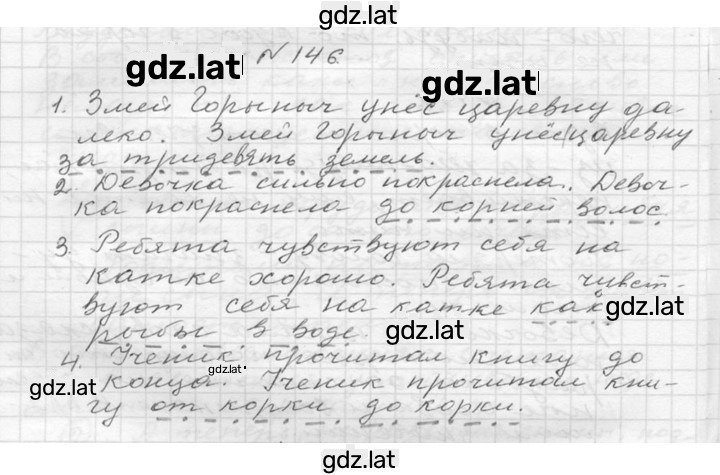 gdz.lat
№ 146
gdz.lat
gdz.lat
1. Змей Горыныч унёс царевну да-
леко. Змей Горыныч унёс царевну
за тридевять земель.
2. Девочка сильно покраснела. Девоч-
ка покраснела до корней волос.
3. Ребята чувствуют себя на
катке хорошо. Ребята чувст-
вуют себя на катке как
gdz.lat
рыбы в воде.
gdz.lat
4. Ученик прочитал книгу до
gdz.lat
gdz.lat
конца. Ученик прочитал кни-
гу от корки до корки.
gdz.lat